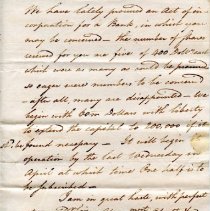 We have lately procured an Act of in-
corporation for a Bank, in which you
may be concerned – the number of shares
reserved for you are five of 400 Dollars each
which were as many as could be procured
so eager were numbers to be concerned
– after all, many are disappointed – We
begin with 60m Dollars with liberty
to extend the capital to 200,000 if it
be found necessary – It will begin
operation by the last Wednesday in
April at which time One half is to
be
I am in great haste, with perfect